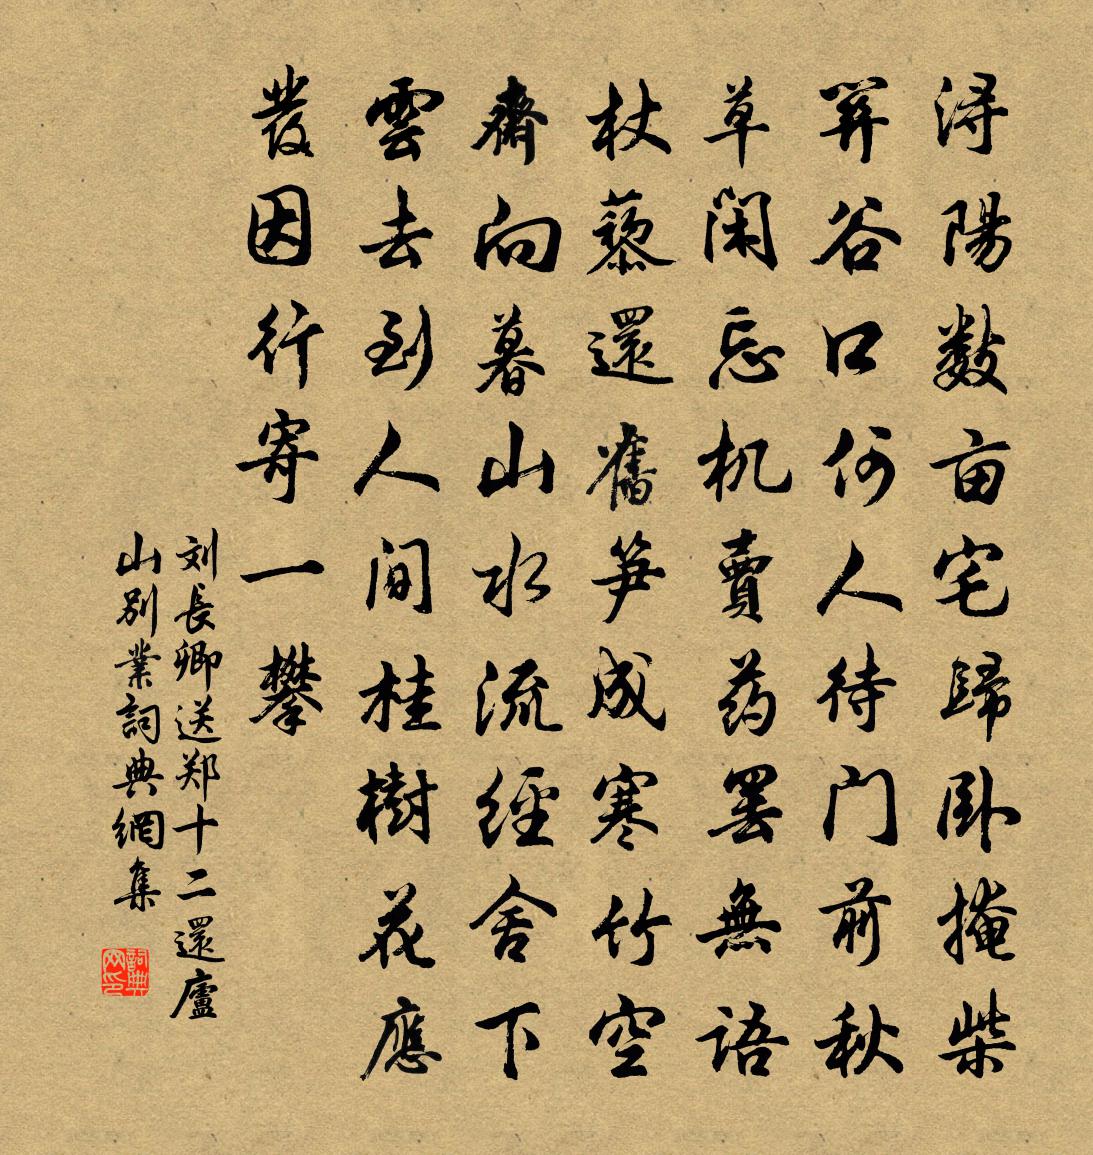 浔陽數亩宅歸卧掩柴
關谷口何人待门前秋
草闲忘机賣药罢無語
杖藜還舊笋成寒竹空
齋向暮山水流經舍下
雲去到人间桂樹花應
發因行寄一攀
刘長卿送郑十二還廬
山别業詞典網集
詞典
网印